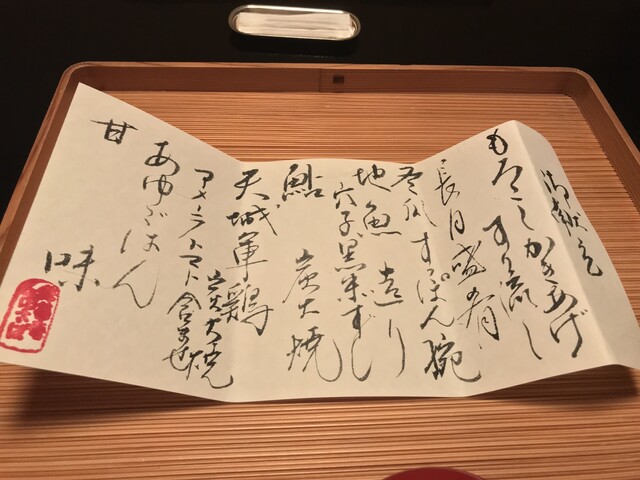 御献立
もろこしかきあげ
すり流し
長月盛肴
冬瓜 すっぽん 椀
地魚 造り
穴子黒米ずし
鮎 炭火焼
天城軍鶏
炭火焼
アメーラトマト含ませ
あゆごはん
甘味